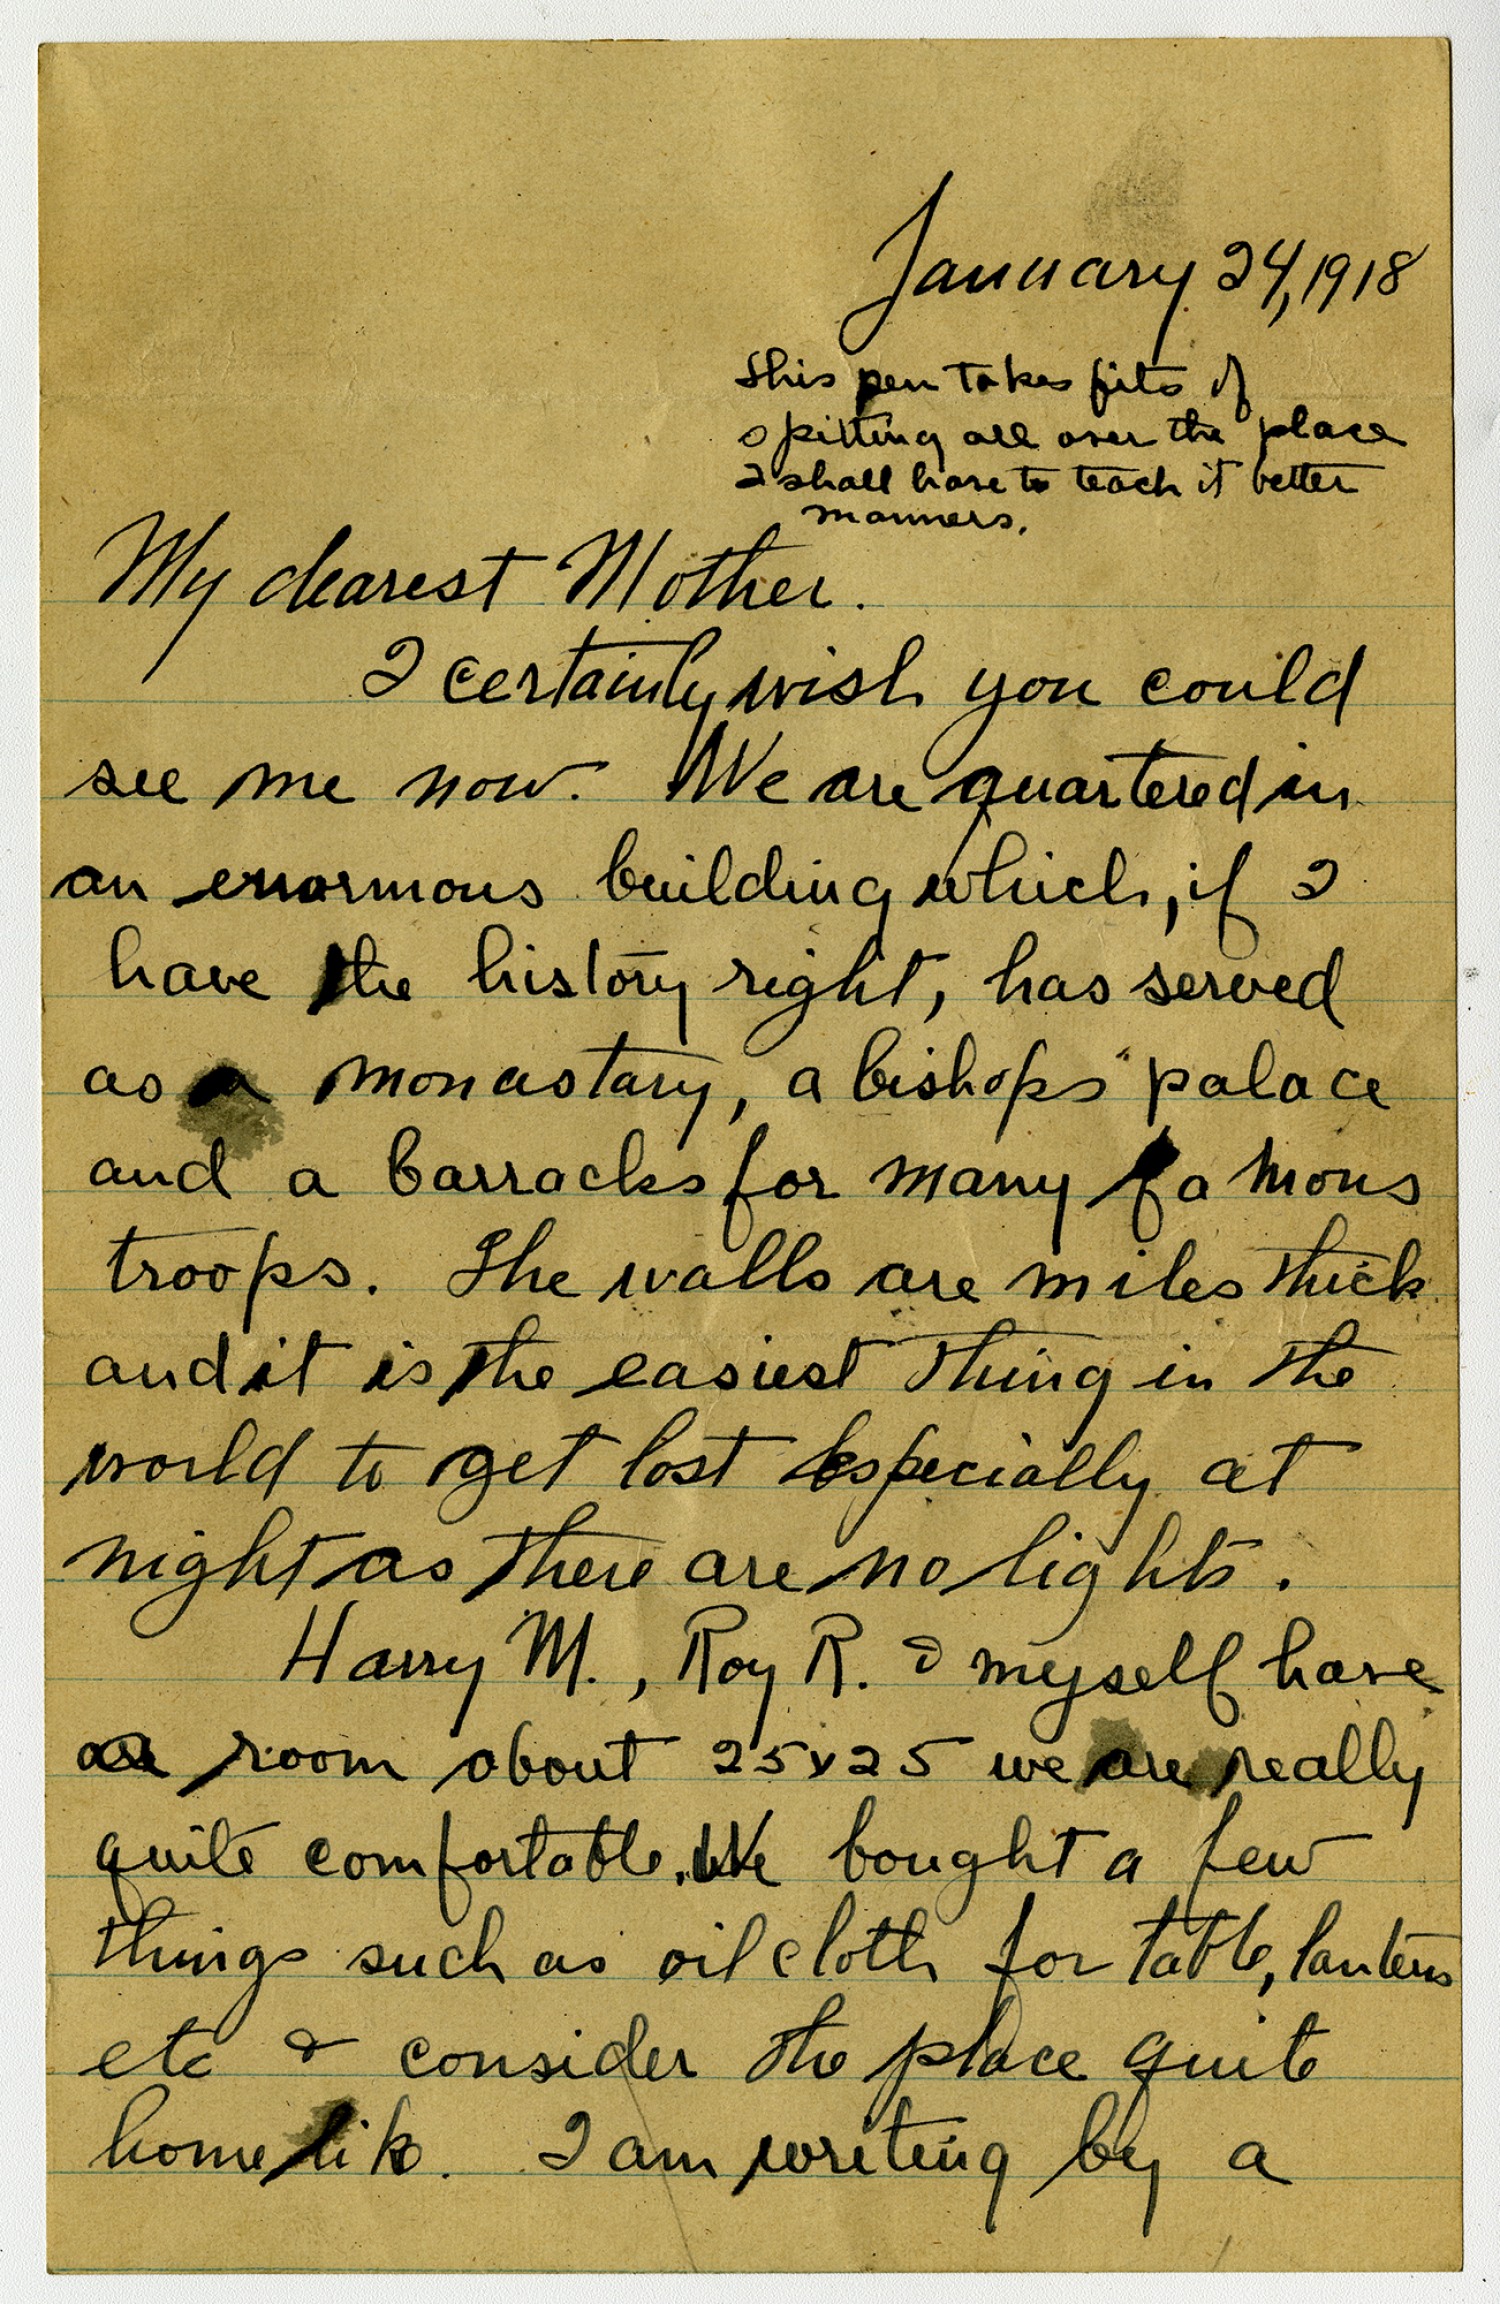 January 24, 1918
This pen takes fits of
spitting all over the place
I shall have to teach it better
manners.
My dearest Mother.
I certainly wish you could
see me now. We are quartered in
an enormous building which, if I
have the history right, has served
as a monastary, a bishops' palace
and a barracks for many famous
troops. The walls are miles thick
and it is the easiest thing in the
world to get lost especially at
night as there are no lights.
Harry M., Roy R. & myself have
a room about 25x25 we are really
quite comfortable. We bought a few
things such as oil cloth for table, lanterns
etc & consider the place quite
homelike. I am writing by a